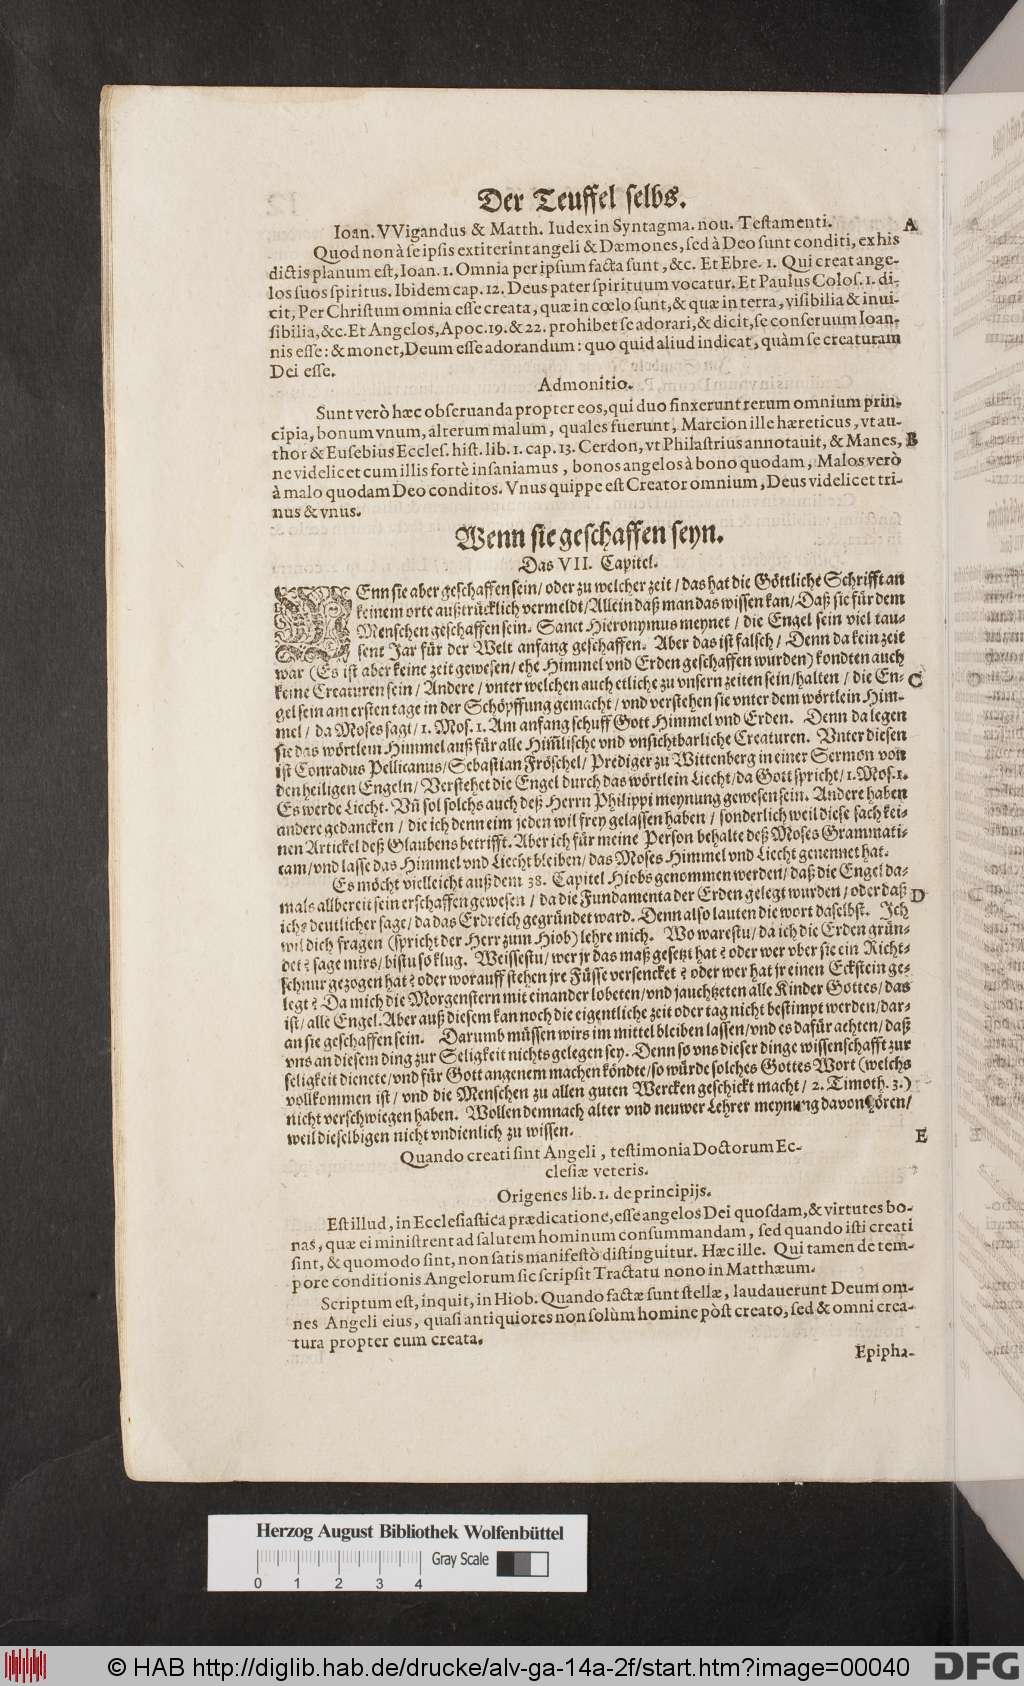 Der Teuffel selbs.
Ioan. VVigandus & Matth. Iudex in Syntagma. nou. Testamenti. A
Quod non à se ipsis extiterint angeli & Dæmones, sed à Deo sunt conditi, ex his
dictis planum est, Ioan. 1. Omnia per ipsum facta sunt, &c. Et Ebre. 1. Qui creat ange-
los suos spiritus. Ibidem cap. 12. Deus pater spirituum vocatur. Et Paulus Colos. 1. di-
cit, Per Christum omnia esse creata, quæ in cœlo sunt, & quæ in terra, visibilia & inui-
sibilia, &c. Et Angelos, Apoc. 19. & 22. prohibet se adorari, & dicit, se conseruum Ioan-
nis esse: & monet, Deum esse adorandum: quo quid aliud indicat, quàm se creaturam
Dei esse.
Admonitio.
Sunt verò hæc obseruanda propter eos, qui duo finxerunt rerum omnium prin-
cipia, bonum vnum, alterum malum, quales fuerunt, Marcion ille hæreticus, vt au-
thor & Eusebius Eccles. hist. lib. 1. cap. 13. Cerdon, vt Philastrius annotauit, & Manes, B
ne videlicet cum illis fortè insaniamus, bonos angelos à bono quodam, Malos verò
à malo quodam Deo conditos. Vnus quippe est Creator omnium, Deus videlicet tri-
nus & vnus.
Wenn sie geschaffen seyn.
Das VII. Capitel.
WEnn sie aber geschaffen sein/ oder zu welcher zeit/ das hat die Göttliche Schrifft an
keinem orte außtrücklich vermeldt/ Allein daß man das wissen kan/ Daß sie für dem
Menschen geschaffen sein. Sanct Hieronymus meynet/ die Engel sein viel tau-
sent Jar für der Welt anfang geschaffen. Aber das ist falsch/ Denn da kein zeit
war (Es ist aber keine zeit gewesen/ ehe Himmel vnd Erden geschaffen wurden) kondten auch
keine Creaturen sein/ Andere/ vnter welchen auch etliche zu vnsern zeiten sein/ halten/ die En- C
gel sein am ersten tage in der Schöpffung gemacht/ vnd verstehen sie vnter dem wörtlein Him-
mel/ da Moses sagt/ 1. Mos. 1. Am anfang schuff Gott Himmel vnd Erden. Denn da legen
sie das wörtlein Himmel auß für alle Him̃lische vnd vnsichtbarliche Creaturen. Vnter diesen
ist Conradus Pellicanus/ Sebastian Fröschel/ Prediger zu Wittenberg in einer Sermon von
den heiligen Engeln/ Verstehet die Engel durch das wörtlein Liecht/ da Gott spricht/ 1. Mos. 1.
Es werde Liecht. Vñ sol solchs auch deß Herrn Philippi meynung gewesen sein. Andere haben
andere gedancken/ die ich denn eim jeden wil frey gelassen haben/ sonderlich weil diese sach kei-
nen Artickel deß Glaubens betrifft. Aber ich für meine Person behalte deß Moses Grammati-
cam/ vnd lasse das Himmel vnd Liecht bleiben/ das Moses Himmel vnd Liecht genennet hat.
Es möcht vielleicht auß dem 38. Capitel Hiobs genommen werden/ daß die Engel da-
mals allbereit sein erschaffen gewesen/ da die Fundamenta der Erden gelegt wurden/ oder daß D
ichs deutlicher sage/ da das Erdreich gegründet ward. Denn also lauten die wort daselbst. Ich
wil dich fragen (spricht der Herr zum Hiob) lehre mich. Wo warestu/ da ich die Erden grün-
det? sage mirs/ bistu so klug. Weissestu/ wer jr das maß gesetzt hat? oder wer vber sie ein Richt-
schnur gezogen hat? oder worauff stehen jre Füsse versencket? oder wer hat jr einen Eckstein ge-
legt? Da mich die Morgenstern mit einander lobeten/ vnd jauchtzeten alle Kinder Gottes/ das
ist/ alle Engel. Aber auß diesem kan noch die eigentliche zeit oder tag nicht bestimpt werden/ dar-
an sie geschaffen sein. Darumb müssen wirs im mittel bleiben lassen/ vnd es dafür achten/ daß
vns an diesem ding zur Seligkeit nichts gelegen sey. Denn so vns dieser dinge wissenschafft zur
seligkeit dienete/ vnd für Gott angenem machen köndte/ so würde solches Gottes Wort (welchs
vollkommen ist/ vnd die Menschen zu allen guten Wercken geschickt macht/ 2. Timoth. 3.)
nicht verschwiegen haben. Wollen demnach alter vnd neuwer Lehrer meynung davon hören/
weil dieselbigen nicht vndienlich zu wissen. E
Quando creati sint Angeli, testimonia Doctorum Ec-
clesiæ veteris.
Origenes lib. 1. de principijs.
Est illud, in Ecclesiastica prædicatione, esse angelos Dei quosdam, & virtutes bo-
nas, quæ ei ministrent ad salutem hominum consummandam, sed quando isti creati
sint, & quomodo sint, non satis manifestò distinguitur. Hæc ille. Qui tamen de tem-
pore conditionis Angelorum sic scripsit Tractatu nono in Matthæum.
Scriptum est, inquit, in Hiob. Quando factæ sunt stellæ, laudauerunt Deum om-
nes Angeli eius, quasi antiquiores non solùm homine pòst creato, sed & omni crea-
tura propter eum creata.
Epipha-
Herzog August Bibliothek Wolfenbüttel
Gray Scale
0 1 2 3 4
© HAB http://diglib.hab.de/drucke/alv-ga-14a-2f/start.htm?image=00040 DFG